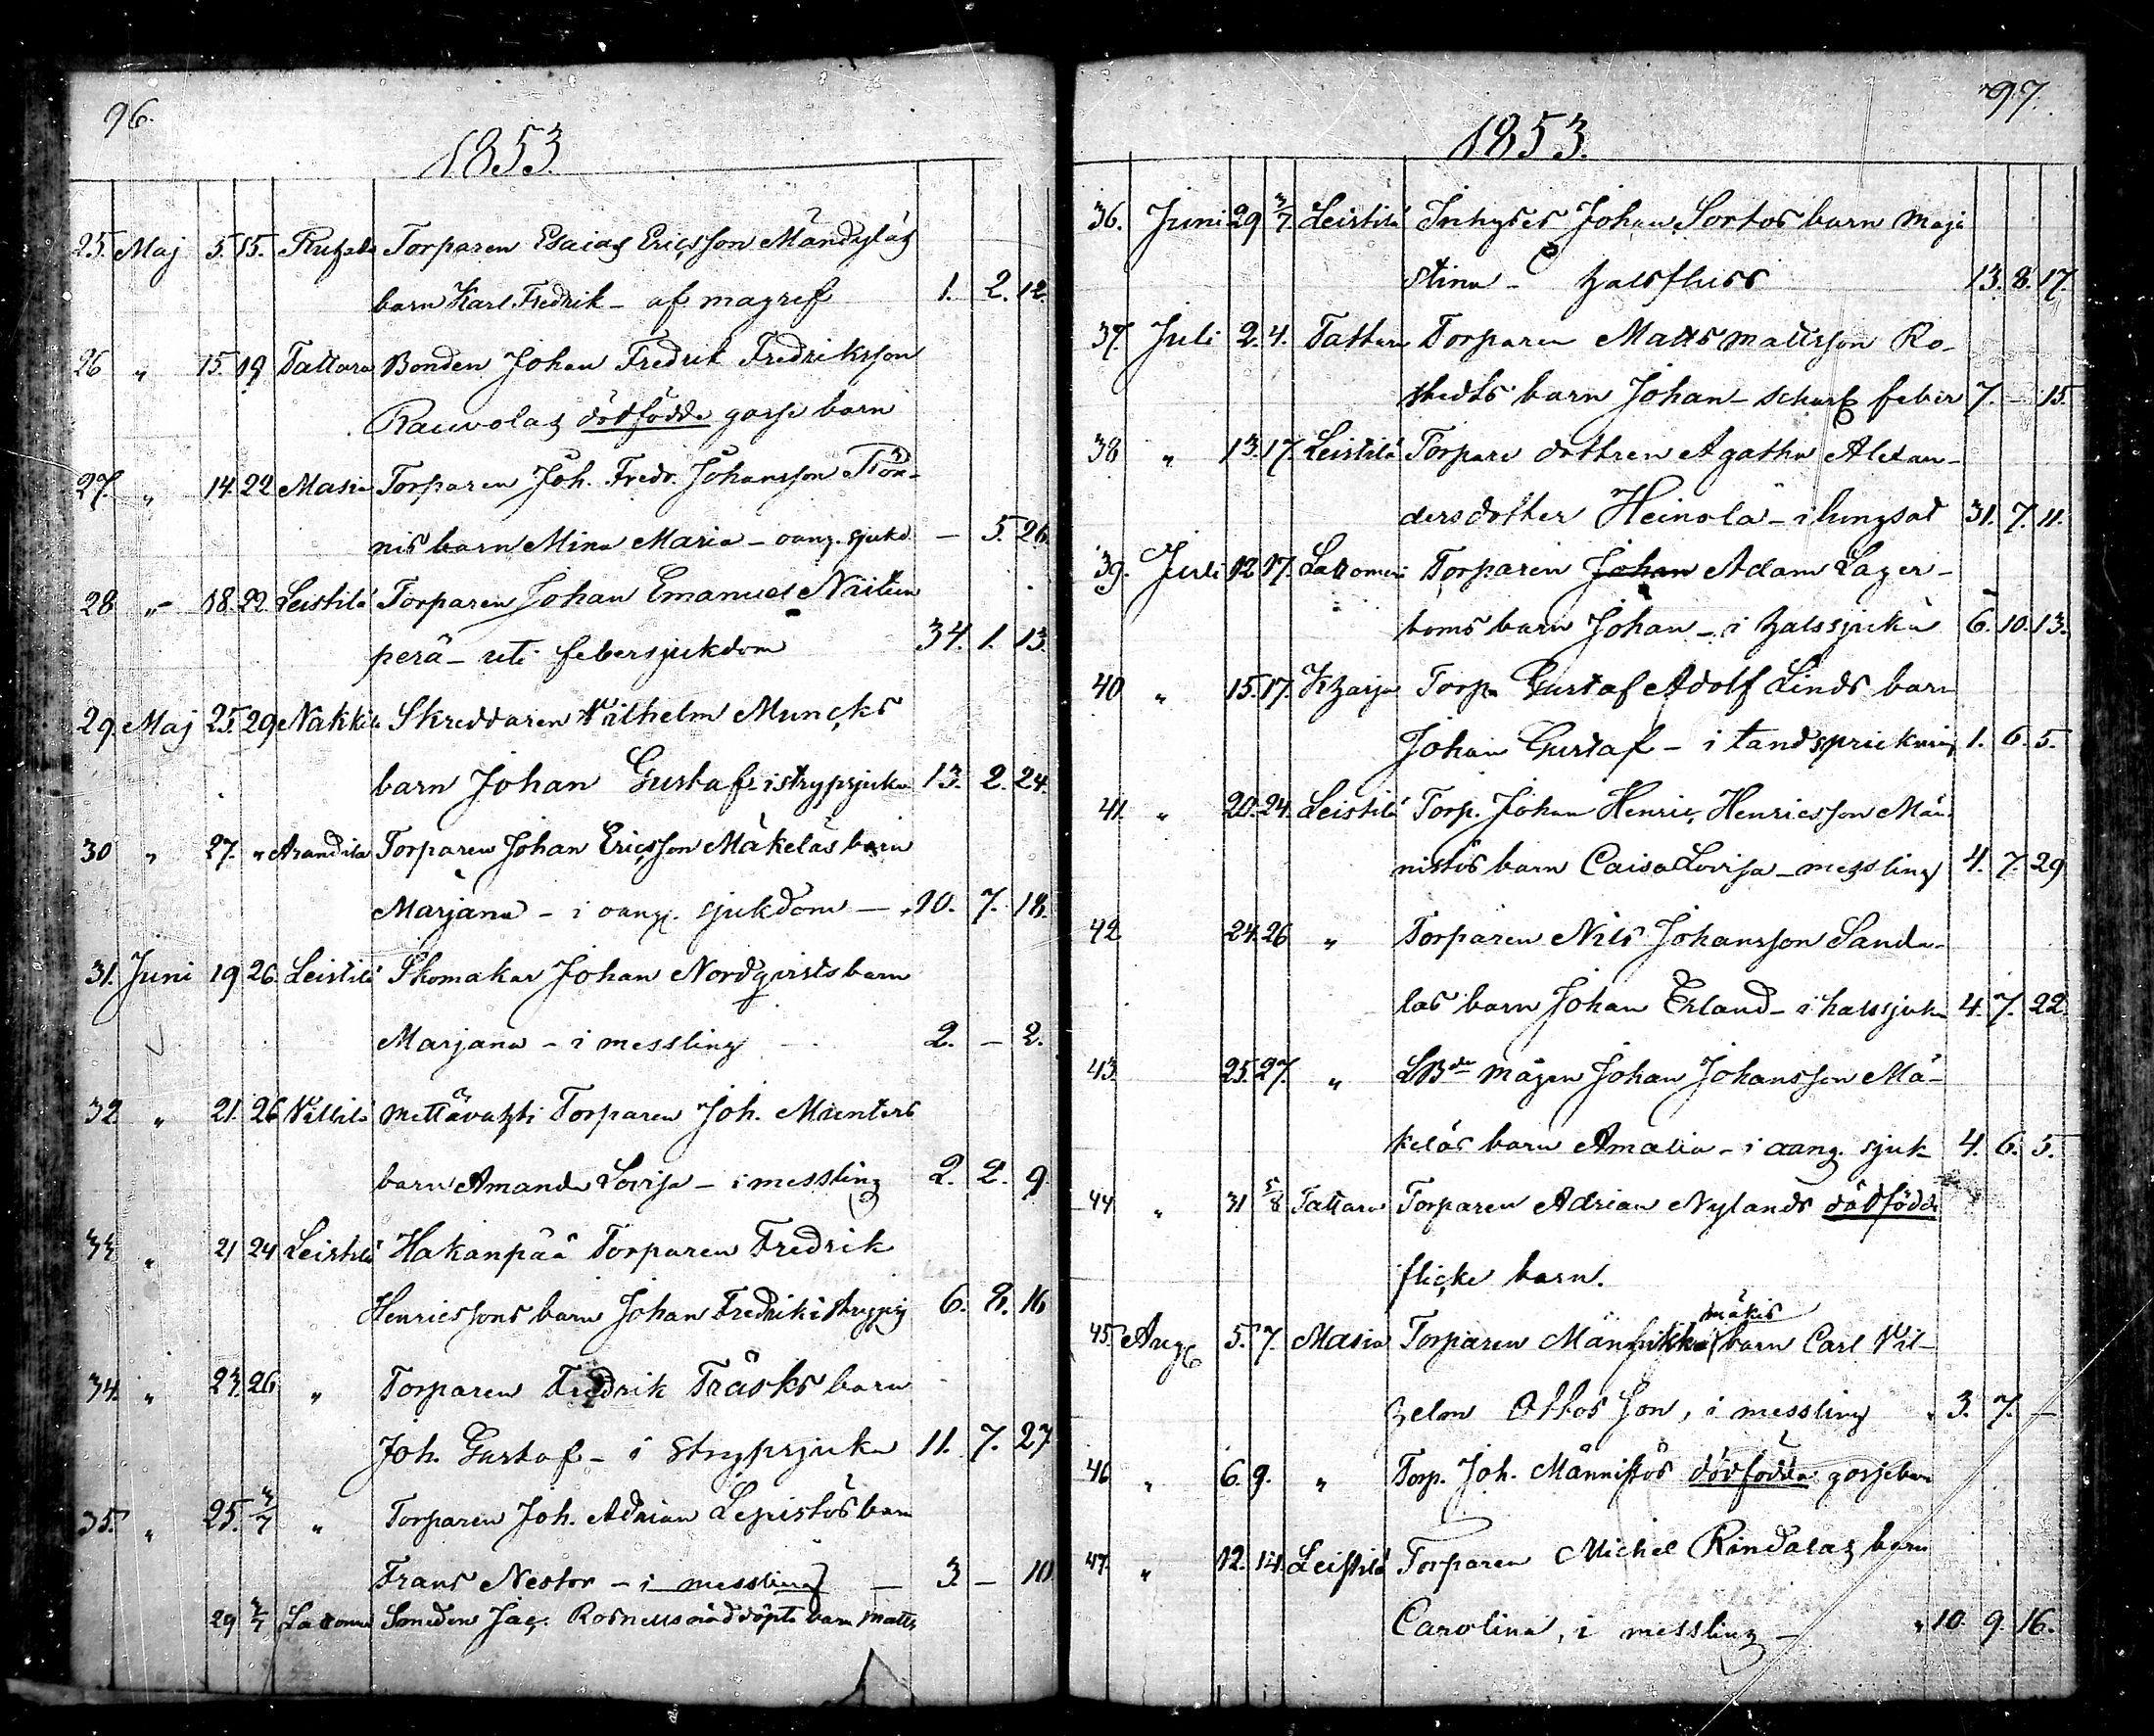 96.
1853.
25. Maj 5. 15. Torparen Esaias Ericsson Mändyläs
barn Karl Fredrik - af magref 1. 2. 12.
26 " 15. 19 Tattara Bonden Johan Fredrik Fredriksson
Rauvolas dödfödde gosse barn
27. " 14. 22 Masia Torparen Joh. Fredr. Johansson Tön-
nis barn Mina Maria - oang. sjukd. - 5. 26.
28 " 18. 22. Leistilä Torparen Johan Emanuel Niitun
perä - uti febersjukdom 34. 1. 13.
29. Maj 25. 29 Nakkila Skreddaren Wilhelm Muncks
barn Johan Gustaf - i strypsjuka 13. 2. 24.
30 " 27. " Arandila Torparen Johan Ericsson Mäkeläs barn
Marjana - i oang. sjukdom - 10. 7. 18.
31. Juni 19 26. Leistilä Skomakar Johan Nordqvists barn
Marjana - i messling 2. - 2.
32. " 21. 26 Villilä Mettävahti Torparen Joh. Munters
barn Amanda Lovisa - i messling 2. 2. 9.
33. " 21 24 Leistilä Hakanpää Torparen Fredrik
Henricssons barn Johan Fredrik i 6. 8. 16.
34. " 23. 26 " Torparen Fredrik Träsks barn
Joh. Gustaf - i strypsjuka 11. 7. 27.
35. " 25. 3/7 " Torparen Joh. Adrian Lepistös barn
Frans Nestor - i messling - 3. - 10
29 3/7 Lattomeri Smeden Jac. Rosnells nöddöpta barn Matts
97.
1853.
36. Juni 29 3/7 Leistilä Inhyses Johan Sortos barn Maja
Stina - halsfluss 13. 8. 17.
37. Juli 2. 4. Tattara Torparen Matts Mattsson Ro-
stedts barn Johan - scharl. feber 7. - 15.
38 " 13. 17. Leistilä Torpare dottren Agatha Alexan-
dersdotter Heinola - i lungsot 31. 7. 11.
39. Juli 12 17. Lattomeri Torparen Johan Adam Lager-
boms barn Johan - i halssjuka 6. 10. 13.
40 " 15. 17. Kharja Torp. Gustaf Adolf Linds barn
Johan Gustaf - i tandsprickning 1. 6. 5.
41. " 20. 24. Leistilä Torp. Johan Henric Henricsson Män-
nistös barn Caisa Lovisa - messling 4. 7. 29
42 24. 26 " Torparen Nils Johansson Sanda-
las barn Johan Erland - i halssjuka 4. 7. 22.
43. 25. 27. " LBde mågen Johan Johansson Mä-
keläs barn Amalia - i oang. sjuk 4. 6. 5.
44 " 31 5/8 Tattara Torparen Adrian Nylands dödfödde
flicke barn.
mäkis
45. Aug. 5. 7. Masia Torparen barn Carl Vil-
helm Ottos son, i messling " 3. 7. -
46 " 6. 9. " Torp. Joh. Männistös dödfödda gossebarn
47. " 12. 14. Leistilä Torparen Michel Rindalas barn
Carolina, i messling - " 10. 9. 16.